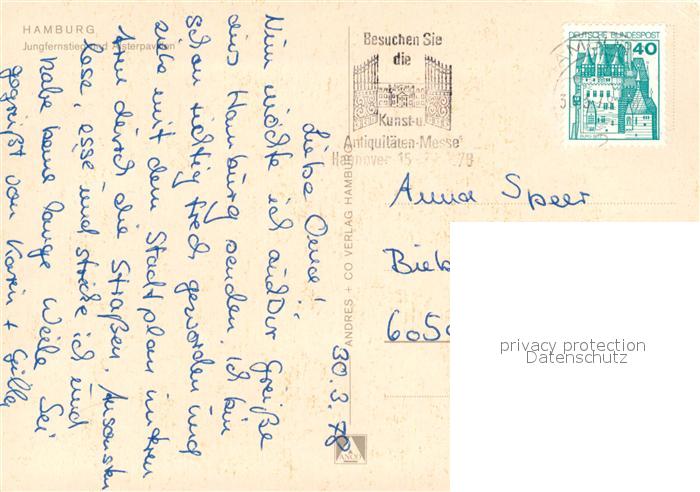 HAMBURG
Jungfernstieg und Alsterpavillon
30.3.78
Liebe Oma!
Nun möchte ich auch Dir Grüße
aus Hamburg senden. Ich bin
schon richtig frech geworden und
eile mit dem Stadtplan unterm
Arm durch die Straßen. Ansonsten
lese, esse und stricke ich und
habe keine lange Weile. Sei
gegrüßt von Karin +
ANDRES + CO VERLAG HAMBURG
ANCO
Besuchen Sie
die
Kunst-u.
Antiquitäten-Messe
Hannover 15
78
DEUTSCHE BUNDESPOST
40
BURG ELTZ
Anna Speer
Biek
605
privacy protection
Datenschutz